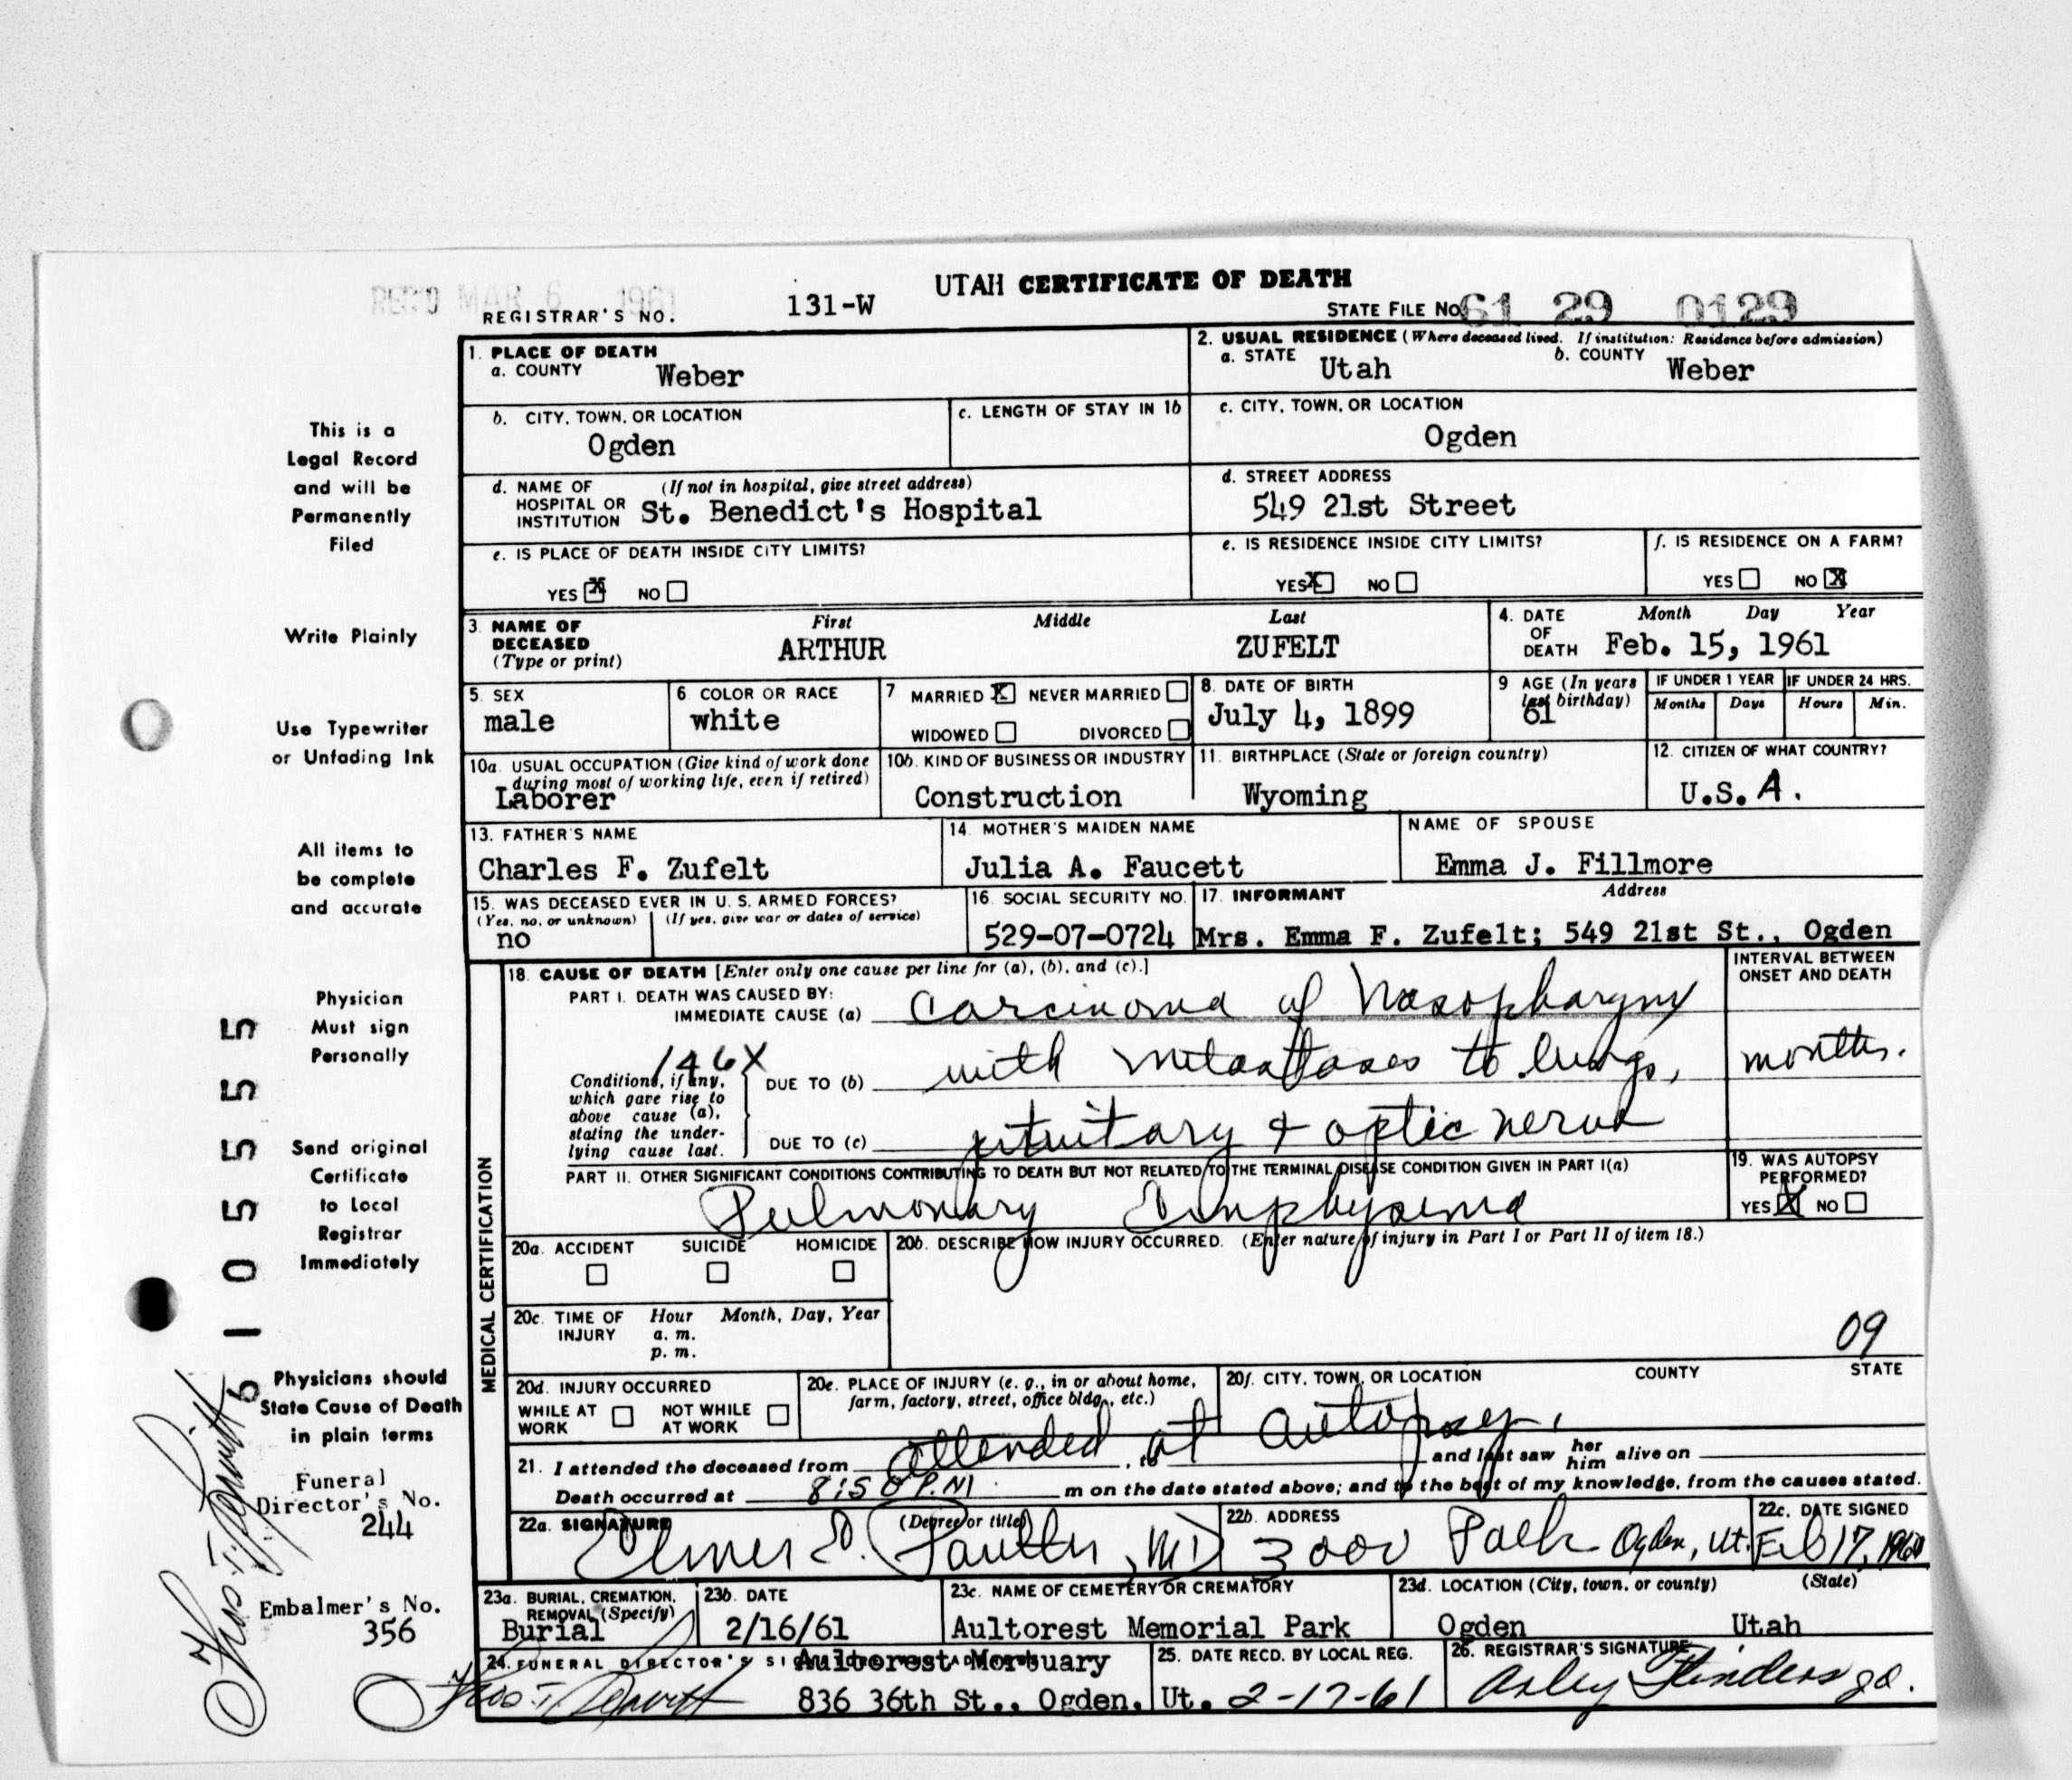 UTAH CERTIFICATE OF DEATH
REC'D MAR 6 1961
REGISTRAR'S NO. 131-W
STATE FILE NO. 61 29 0129
1. PLACE OF DEATH
a. COUNTY Weber
2. USUAL RESIDENCE (Where deceased lived. If institution: Residence before admission)
a. STATE Utah b. COUNTY Weber
b. CITY, TOWN, OR LOCATION Ogden
c. LENGTH OF STAY IN 1b
c. CITY, TOWN, OR LOCATION Ogden
d. NAME OF HOSPITAL OR INSTITUTION (If not in hospital, give street address) St. Benedict's Hospital
d. STREET ADDRESS 549 21st Street
e. IS PLACE OF DEATH INSIDE CITY LIMITS?
YES X NO
e. IS RESIDENCE INSIDE CITY LIMITS?
YES X NO
f. IS RESIDENCE ON A FARM?
YES NO X
3. NAME OF DECEASED (Type or print)
First Middle Last
ARTHUR ZUFELT
4. DATE OF DEATH Month Day Year
Feb. 15, 1961
5. SEX male
6. COLOR OR RACE white
7. MARRIED X NEVER MARRIED
WIDOWED DIVORCED
8. DATE OF BIRTH July 4, 1899
9. AGE (In years last birthday) 61
IF UNDER 1 YEAR Months Days
IF UNDER 24 HRS. Hours Min.
10a. USUAL OCCUPATION (Give kind of work done during most of working life, even if retired) Laborer
10b. KIND OF BUSINESS OR INDUSTRY Construction
11. BIRTHPLACE (State or foreign country) Wyoming
12. CITIZEN OF WHAT COUNTRY? U.S.A.
13. FATHER'S NAME Charles F. Zufelt
14. MOTHER'S MAIDEN NAME Julia A. Faucett
NAME OF SPOUSE Emma J. Fillmore
15. WAS DECEASED EVER IN U. S. ARMED FORCES?
(Yes, no, or unknown) (If yes, give war or dates of service)
no
16. SOCIAL SECURITY NO. 529-07-0724
17. INFORMANT Address
Mrs. Emma F. Zufelt; 549 21st St., Ogden
18. CAUSE OF DEATH [Enter only one cause per line for (a), (b), and (c).]
INTERVAL BETWEEN ONSET AND DEATH
PART I. DEATH WAS CAUSED BY:
IMMEDIATE CAUSE (a) Carcinoma of Nasopharynx
146X
Conditions, if any, which gave rise to above cause (a), stating the underlying cause last.
DUE TO (b) with metastases to lungs, months.
DUE TO (c) pituitary + optic nerve
PART II. OTHER SIGNIFICANT CONDITIONS CONTRIBUTING TO DEATH BUT NOT RELATED TO THE TERMINAL DISEASE CONDITION GIVEN IN PART I(a)
Pulmonary Emphysema
19. WAS AUTOPSY PERFORMED?
YES X NO
20a. ACCIDENT SUICIDE HOMICIDE
20b. DESCRIBE HOW INJURY OCCURRED. (Enter nature of injury in Part I or Part II of item 18.)
20c. TIME OF INJURY Hour Month, Day, Year
a. m.
p. m.
09
20d. INJURY OCCURRED
WHILE AT WORK NOT WHILE AT WORK
20e. PLACE OF INJURY (e. g., in or about home, farm, factory, street, office bldg., etc.)
20f. CITY, TOWN, OR LOCATION COUNTY STATE
attended at autopsy.
21. I attended the deceased from , to and last saw her him alive on
Death occurred at 8:50 P.M. m on the date stated above; and to the best of my knowledge, from the causes stated.
22a. SIGNATURE (Degree or title)
Elmer D. MD
22b. ADDRESS
3000 Polk Ogden, Ut.
22c. DATE SIGNED
Feb 17,
23a. BURIAL, CREMATION, REMOVAL (Specify) Burial
23b. DATE 2/16/61
23c. NAME OF CEMETERY OR CREMATORY Aultorest Memorial Park
23d. LOCATION (City, town, or county) (State)
Ogden Utah
24. FUNERAL DIRECTOR'S SIGNATURE AND ADDRESS
Aultorest Mortuary
836 36th St., Ogden, Ut.
25. DATE RECD. BY LOCAL REG. 2-17-61
26. REGISTRAR'S SIGNATURE
Flinders
MEDICAL CERTIFICATION
This is a
Legal Record
and will be
Permanently
Filed
Write Plainly
Use Typewriter
or Unfading Ink
All items to
be complete
and accurate
Physician
Must sign
Personally
Send original
Certificate
to Local
Registrar
Immediately
Physicians should
State Cause of Death
in plain terms
Funeral
Director's No.
244
Embalmer's No.
356
6 1 0 5 5 5 5